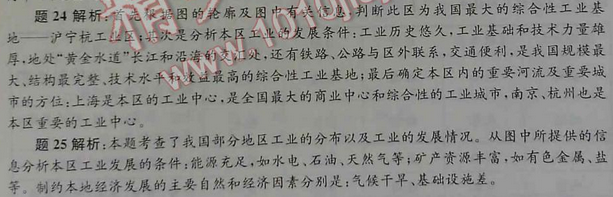 题 24 解析:首先根据图的轮廓及图中有关信息,判断此区为我国最大的综合性工业基
地——沪宁杭工业区;其次是分析本区工业的发展条件:工业历史悠久,工业基础和技术力量雄
厚,地处“黄金水道”长江和沿海的交汇处,还有铁路、公路与区外联系,交通便利,是我国规模最
大、结构最完整、技术水平和效益最高的综合性工业基地;最后确定本区内的重要河流及重要城
市的方位:上海是本区的工业中心,是全国最大的商业中心和综合性的工业城市,南京、杭州也是
本区重要的工业中心。
题 25 解析:本题考查了我国部分地区工业的分布以及工业的发展情况。从图中所提供的信
息分析本区工业发展的条件:能源充足,如水电、石油、天然气等;矿产资源丰富,如有色金属、盐
等。制约本地经济发展的主要自然和经济因素分别是:气候干旱、基础设施差。